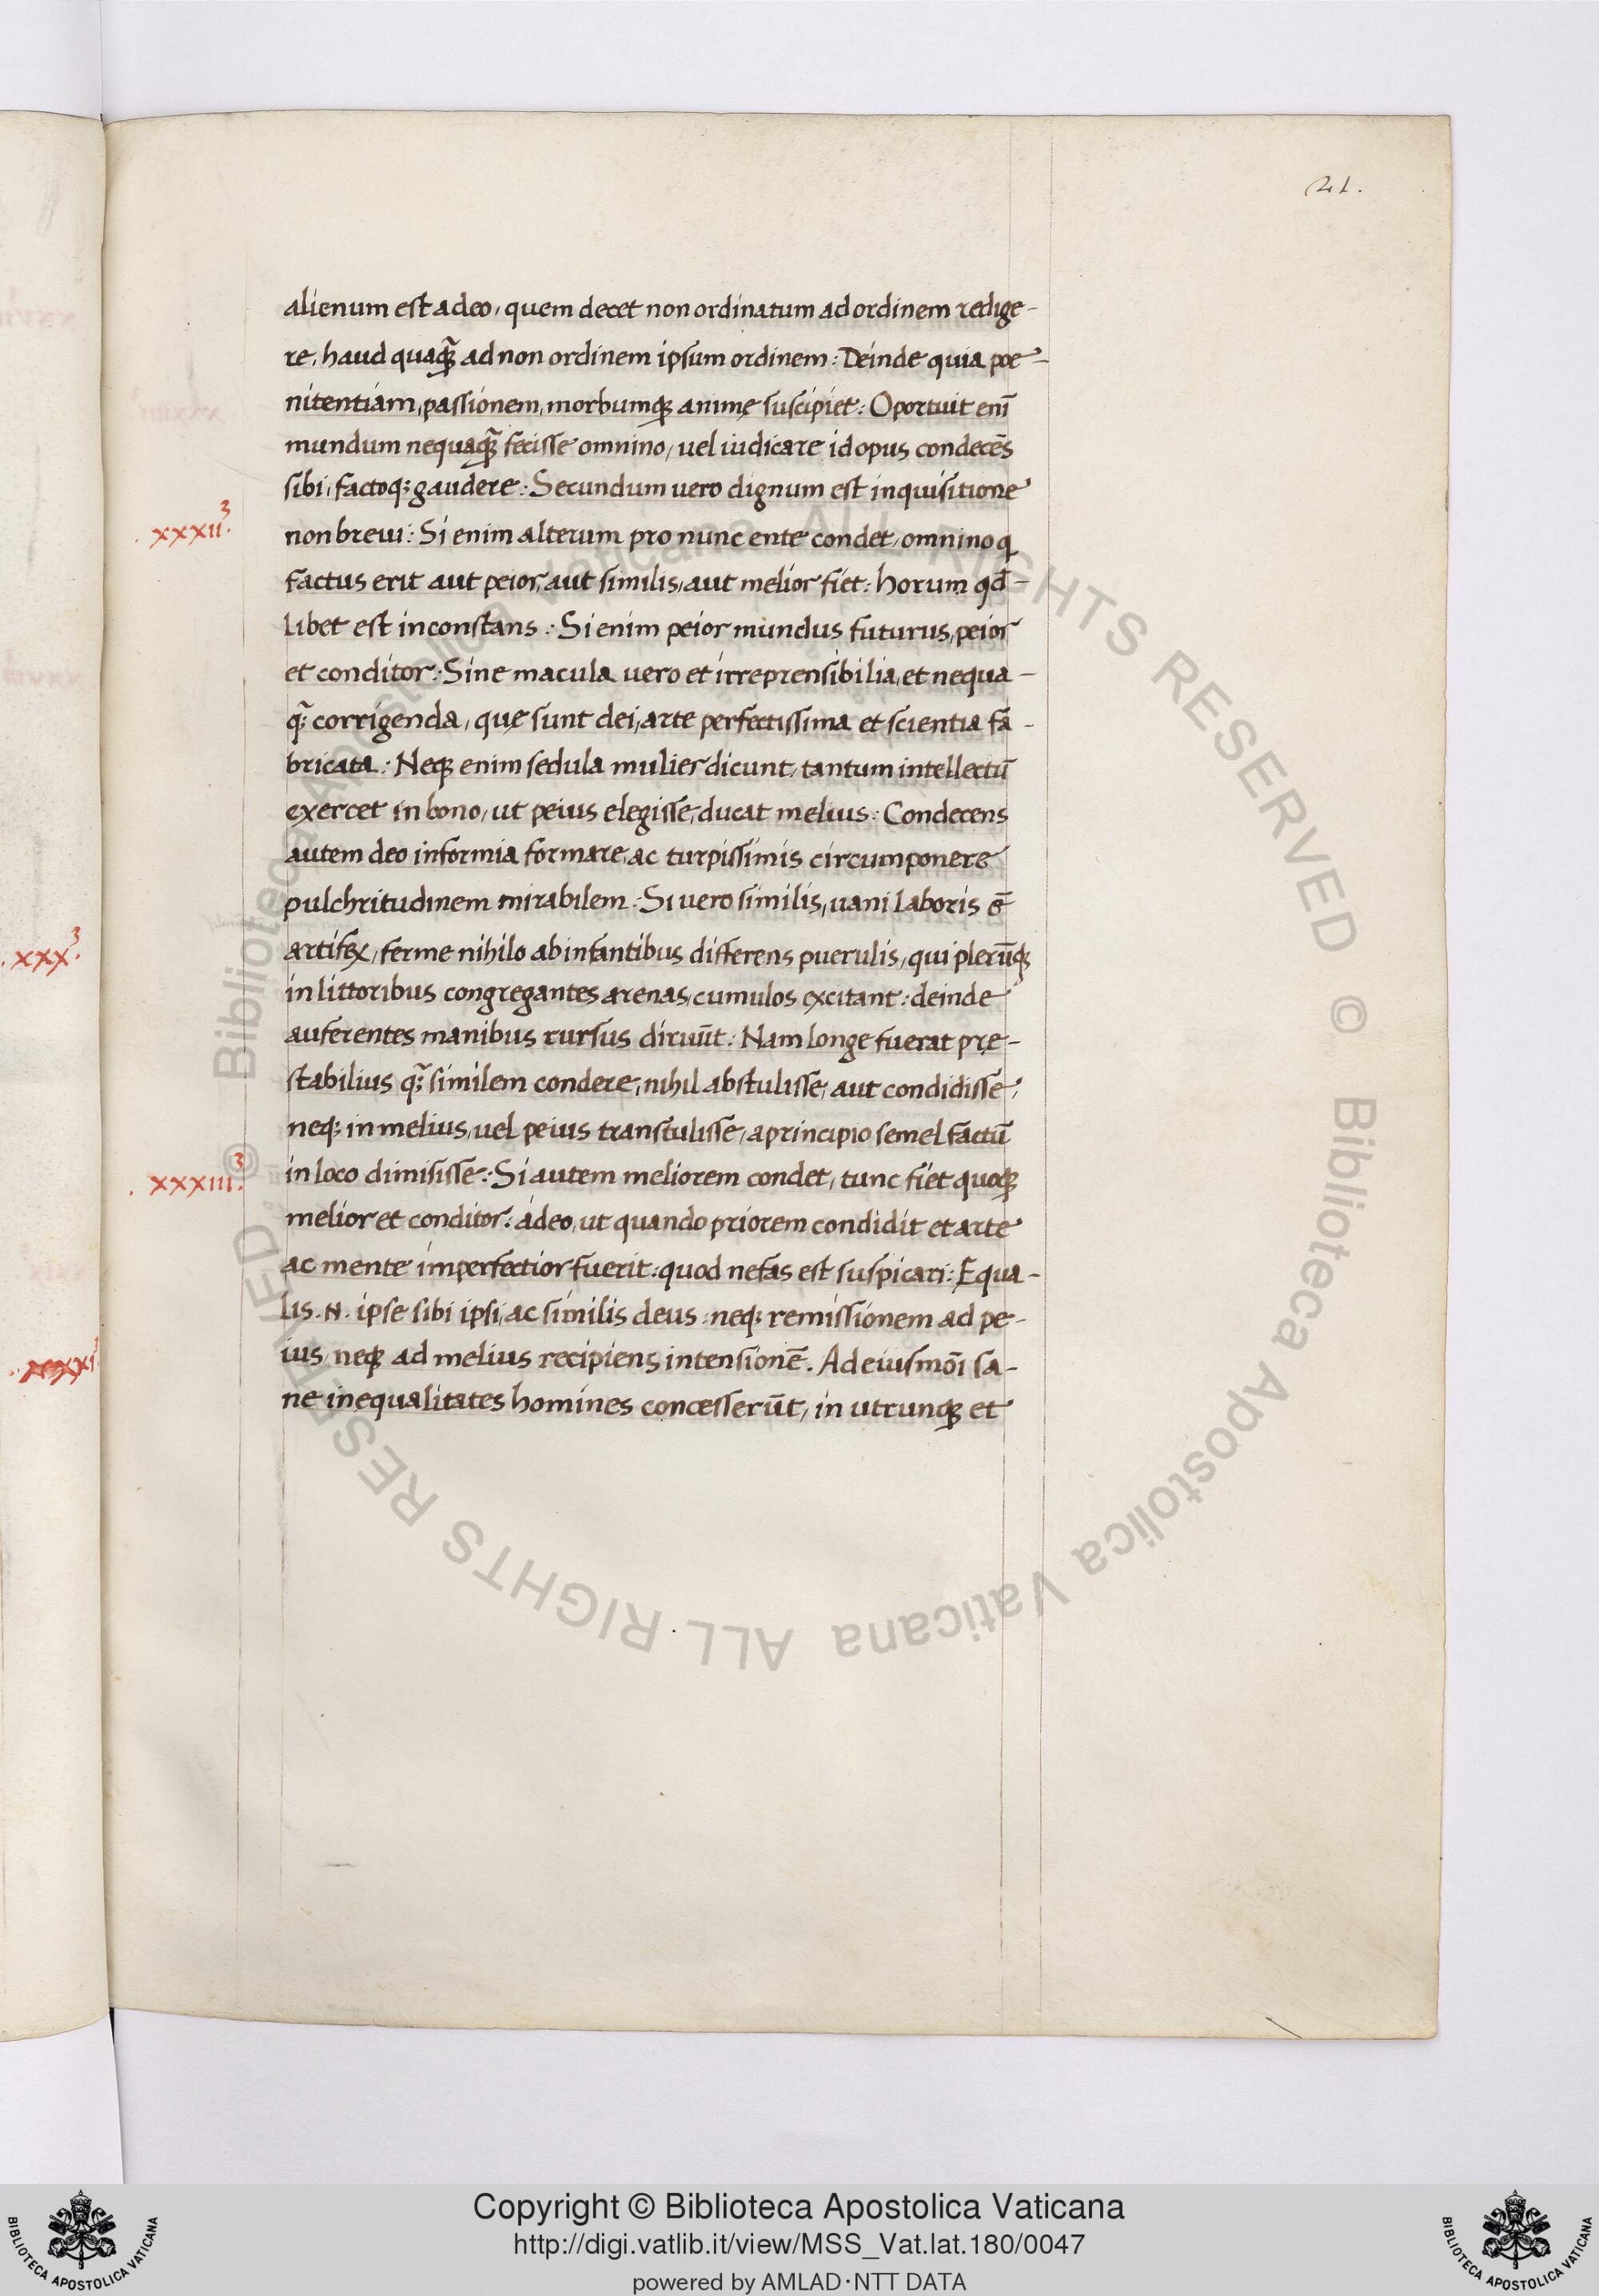 21.
alienum est a deo, quem decet non ordinatum ad ordinem redige-
re, haud quaqꝫ̃ ad non ordinem ipsum ordinem: Deinde quia poe-
nitentiam, passionem, morbumqꝫ animę suscipiet: Oportuit enĩ
mundum nequaqꝫ̃ fecisse omnino, uel iudicare id opus condecẽs
sibi, factoqꝫ gaudere: Secundum uero dignum est inquisitione
.xxxii.
non breui: Si enim alterum pro nunc ente condet, omnino q
factus erit aut peior, aut similis, aut melior fiet: horum qd̃-
libet est inconstans: Si enim peior mundus futurus, peior
et conditor: Sine macula uero et irreprensibilia, et nequa-
qꝫ̃ corrigenda, quę sunt dei, arte perfectissima et scientia fa-
bricata: Neqꝫ enim sedula mulier dicunt, tantum intellectũ
exercet in bono, ut peius elegisse, ducat melius: Condecens
autem deo informia formare, ac turpissimis circumponere
pulchritudinem mirabilem: Si uero similis, uani laboris ẽ
artifex, ferme nihilo ab infantibus differens puerulis, qui plerũqꝫ
in littoribus congregantes arenas, cumulos excitant: deinde
auferentes manibus rursus diruũt: Nam longe fuerat prę-
stabilius qꝫ̃ similem condere, nihil abstulisse, aut condidisse,
neqꝫ in melius, uel peius transtulisse, a principio semel factũ
.xxxiii.
in loco dimisisse: Si autem meliorem condet, tunc fiet quoqꝫ
melior et conditor: ádeo, ut quando priorem condidit et arte
ac mente imperfectior fuerit: quod nefas est suspicari: Equa-
lis .N. ipse sibi ipsi, ac similis deus: neqꝫ remissionem ad pe-
ius, neqꝫ ad melius recipiens intensionẽ. Ad eiusmõi sa-
ne inequalitates homines concesserũt, in utrunqꝫ et
.xxx.
Copyright © Biblioteca Apostolica Vaticana
http://digi.vatlib.it/view/MSS_Vat.lat.180/0047
powered by AMLAD·NTT DATA
BIBLIOTECA APOSTOLICA VATICANA
BIBLIOTECA APOSTOLICA VATICANA
© Biblioteca Apostolica Vaticana ALL RIGHTS RESERVED
© Biblioteca Apostolica Vaticana ALL RIGHTS RESERVED